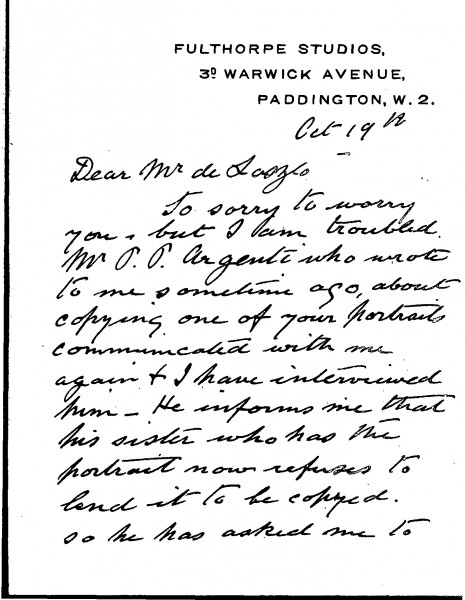 FULTHORPE STUDIOS,
3D WARWICK AVENUE,
PADDINGTON, W. 2.
Oct 19th
Dear Mr de Laszlo
So sorry to worry
you, but I am troubled.
Mr P. P. Argenti who wrote
to me sometime ago, about
copying one of your portraits
communicated with me
again & I have interviewed
him – He informs me that
his sister who has the
portrait now refuses to
lend it to be copyed.
so he has asked me to